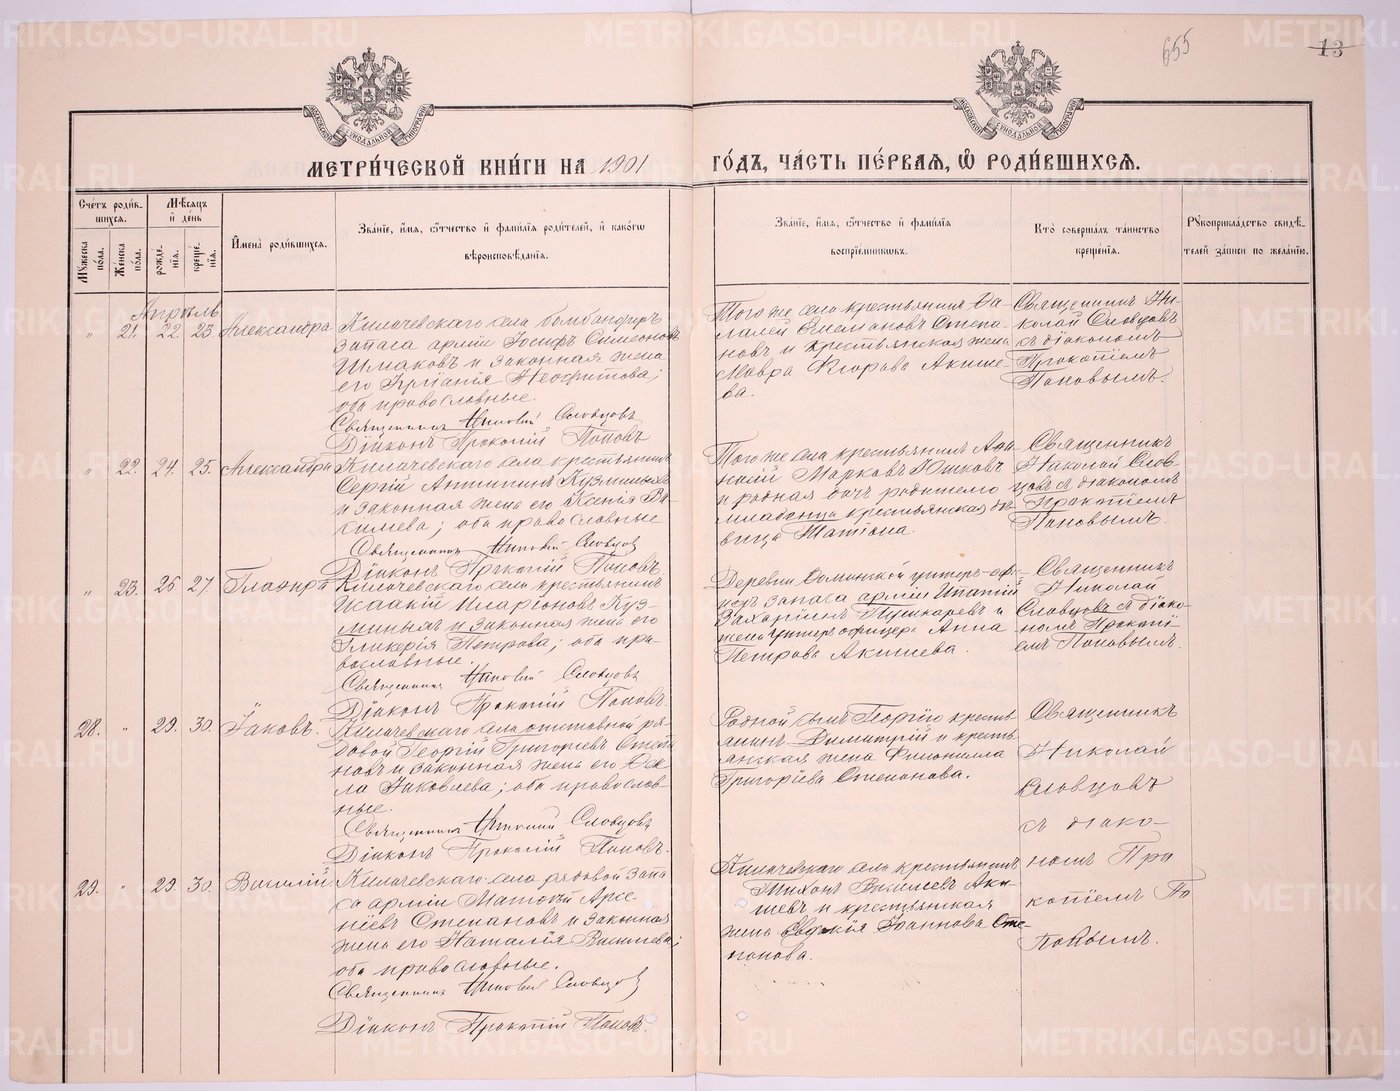 655
13
МЕТРИ́ЧЕСКОЙ КНИ́ГИ НА 1901 ГО́ДЪ, ЧА́СТЬ ПЕ́РВАЯ, Ѿ РОДИ́ВШИХСЯ.
Сче́тъ роди́вшихся.
Мѣ́сяцъ и҆ де́нь
Му́жеска по́ла.
Же́нска по́ла.
рожде́нїѧ.
креще́нїѧ.
И҆мена̀ роди́вшихся.
Зва́нїе, и҆́мя, ѻ҆́тчество и҆ фами́лїѧ роди́телей, и҆ како́гѡ вѣроисповѣ́данїѧ.
Зва́нїе, и҆́мя, ѻ҆́тчество и҆ фами́лїѧ воспрїе́мниковъ.
Кто̀ соверша́лъ та́инство креще́нїѧ.
Рукоприкла́дство свидѣ́телей за́писи по жела́нїю.
Апрѣль
" 21. 22. 23. Александра
Киличевскаго села бомбандиръ
запаса армiи Iосифъ Симеоновъ
Шмаковъ и законная жена
его Неофитова;
оба православные.
Священникъ Николай Словцовъ
Дiаконъ Прокопiй Поповъ
Того же села крестьянинъ
Степа-
новъ и крестьянская жена
Мавра Егорова Акише-
ва.
Священникъ Ни-
колай Словцовъ
съ дiакономъ
Прокопiемъ
Поповымъ.
" 22. 24. 25. Александра
Киличевскаго села крестьянинъ
Сергiй Антипинъ Кузминыхъ
и законная жена его Ксенiя Ва-
силиева; оба православные
Священникъ Николай Словцовъ
Дiаконъ Прокопiй Поповъ
Того же села крестьянинъ
Марковъ Юшковъ
и родная дочь родившего
младенца крестьянская дѣ-
вица Татiана.
Священникъ
Николай Слов-
цовъ съ дiакономъ
Прокопiемъ
Поповымъ.
" 23. 26 27. Глафира
Киличевскаго села крестьянинъ
Исаакiй Иларiоновъ Куз-
миныхъ и законная жена его
Гликерiя Петрова; оба пра-
вославные.
Священникъ Николай Словцовъ
Дiаконъ Прокопiй Поповъ.
Деревни унтеръ-офи-
церъ запаса армiи Ипатiй
Захарiинъ Пушкаревъ и
жена унтеръ офицера Анна
Петрова Акишева.
Священникъ
Николай
Словцовъ съ дiако-
номъ Прокопi-
емъ Поповымъ.
28. " 29. 30. Iаковъ.
Киличевскаго села отставной ря-
довой Георгiй Григорiевъ Степа
новъ и законная жена его
Iаковлева; оба православ-
ные.
Священникъ Николай Словцовъ
Дiаконъ Прокопiй Поповъ.
Родной сынъ Георгiю кресть-
янинъ Димитрiй и кресть-
янская жена Филонилла
Григорiева Степанова.
Священникъ
Николай
Словцовъ
съ дiако-
номъ Про
копiемъ По
повымъ.
29. " 29. 30. Василiй
Киличевскаго села рядовой запа
са армiи Матѳей Арсе-
нiевъ Степановъ и законная
жена его Наталiя Василiева;
оба православные.
Священникъ Николай Словцовъ
Дiаконъ Прокопiй Поповъ.
Киличевскаго села крестьянинъ
Тихонъ Василiевъ Аки-
шевъ и крестьянская
жена Евдокiя Iоаннова Сте-
панова.
METRIKI.GASO-URAL.RU